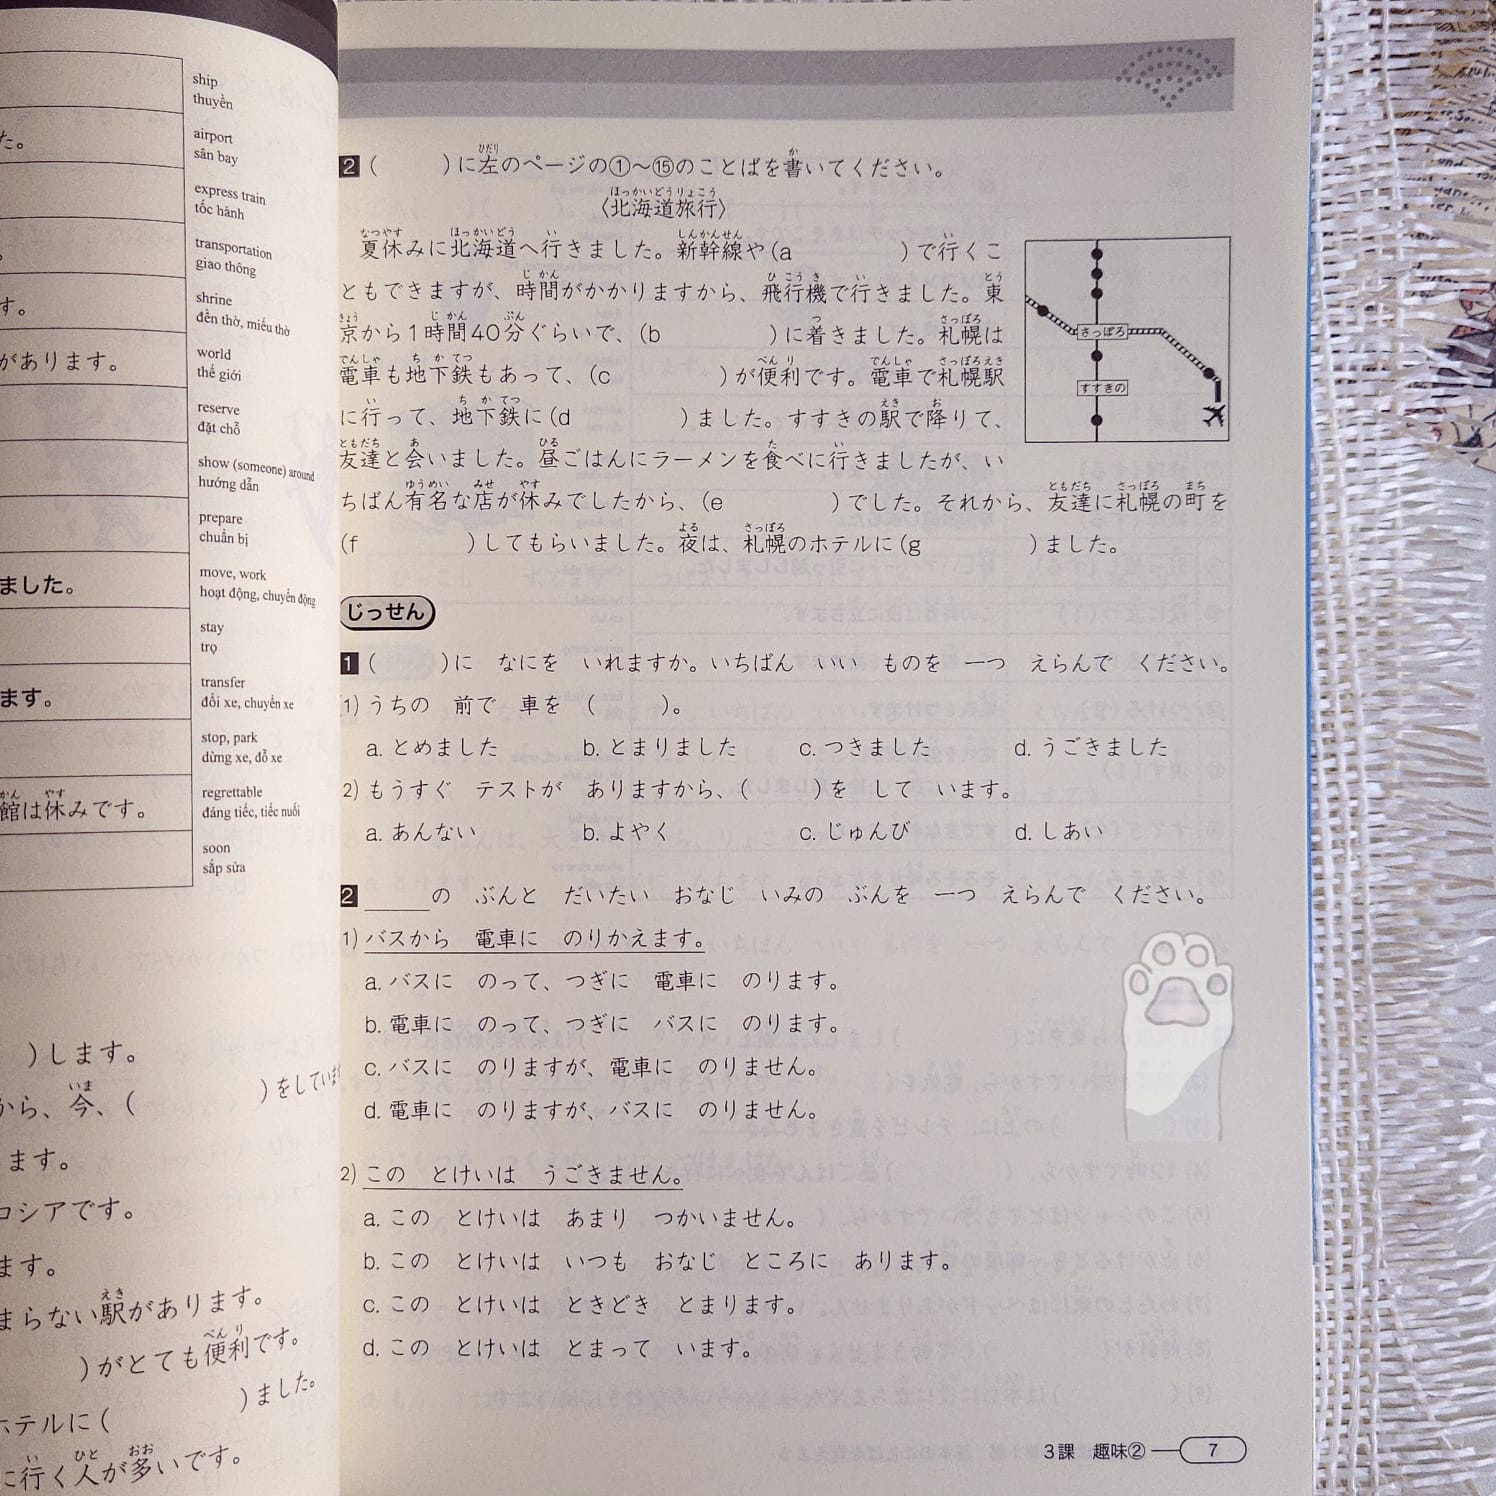 ship
thuyền
た。
airport
sân bay
express train
tốc hành
transportation
giao thông
す。
shrine
đền thờ, miếu thờ
があります。
world
thế giới
reserve
đặt chỗ
show (someone) around
hướng dẫn
prepare
chuẩn bị
ました。
move, work
hoạt động, chuyển động
stay
trọ
ます。
transfer
đổi xe, chuyển xe
stop, park
dừng xe, đỗ xe
館は休みです。
regrettable
đáng tiếc, tiếc nuối
soon
sắp sửa
)します。
から、今、( )をしていま
ます。
ロシアです。
ます。
まらない駅があります。
)がとても便利です。
ホテルに( )ました。
に行く人が多いです。
2 ( )に左のページの①～⑮のことばを書いてください。
〈北海道旅行〉
夏休みに北海道へ行きました。新幹線や(a )で行くこ
ともできますが、時間がかかりますから、飛行機で行きました。東
京から1時間40分ぐらいで、(b )に着きました。札幌は
電車も地下鉄もあって、(c )が便利です。電車で札幌駅
に行って、地下鉄に(d )ました。すすきの駅で降りて、
友達と会いました。昼ごはんにラーメンを食べに行きましたが、い
ちばん有名な店が休みでしたから、(e )でした。それから、友達に札幌の町を
(f )してもらいました。夜は、札幌のホテルに(g )ました。
さっぽろ
すすきの
じっせん
1 ( )に なにを いれますか。いちばん いい ものを 一つ えらんで ください。
1) うちの 前で 車を ( )。
a. とめました b. とまりました c. つきました d. うごきました
2) もうすぐ テストが ありますから、( )を して います。
a. あんない b. よやく c. じゅんび d. しあい
2 ＿＿＿の ぶんと だいたい おなじ いみの ぶんを 一つ えらんで ください。
1) バスから 電車に のりかえます。
a. バスに のって、つぎに 電車に のります。
b. 電車に のって、つぎに バスに のります。
c. バスに のりますが、電車に のりません。
d. 電車に のりますが、バスに のりません。
2) この とけいは うごきません。
a. この とけいは あまり つかいません。
b. この とけいは いつも おなじ ところに あります。
c. この とけいは ときどき とまります。
d. この とけいは とまって います。
3課 趣味② 7